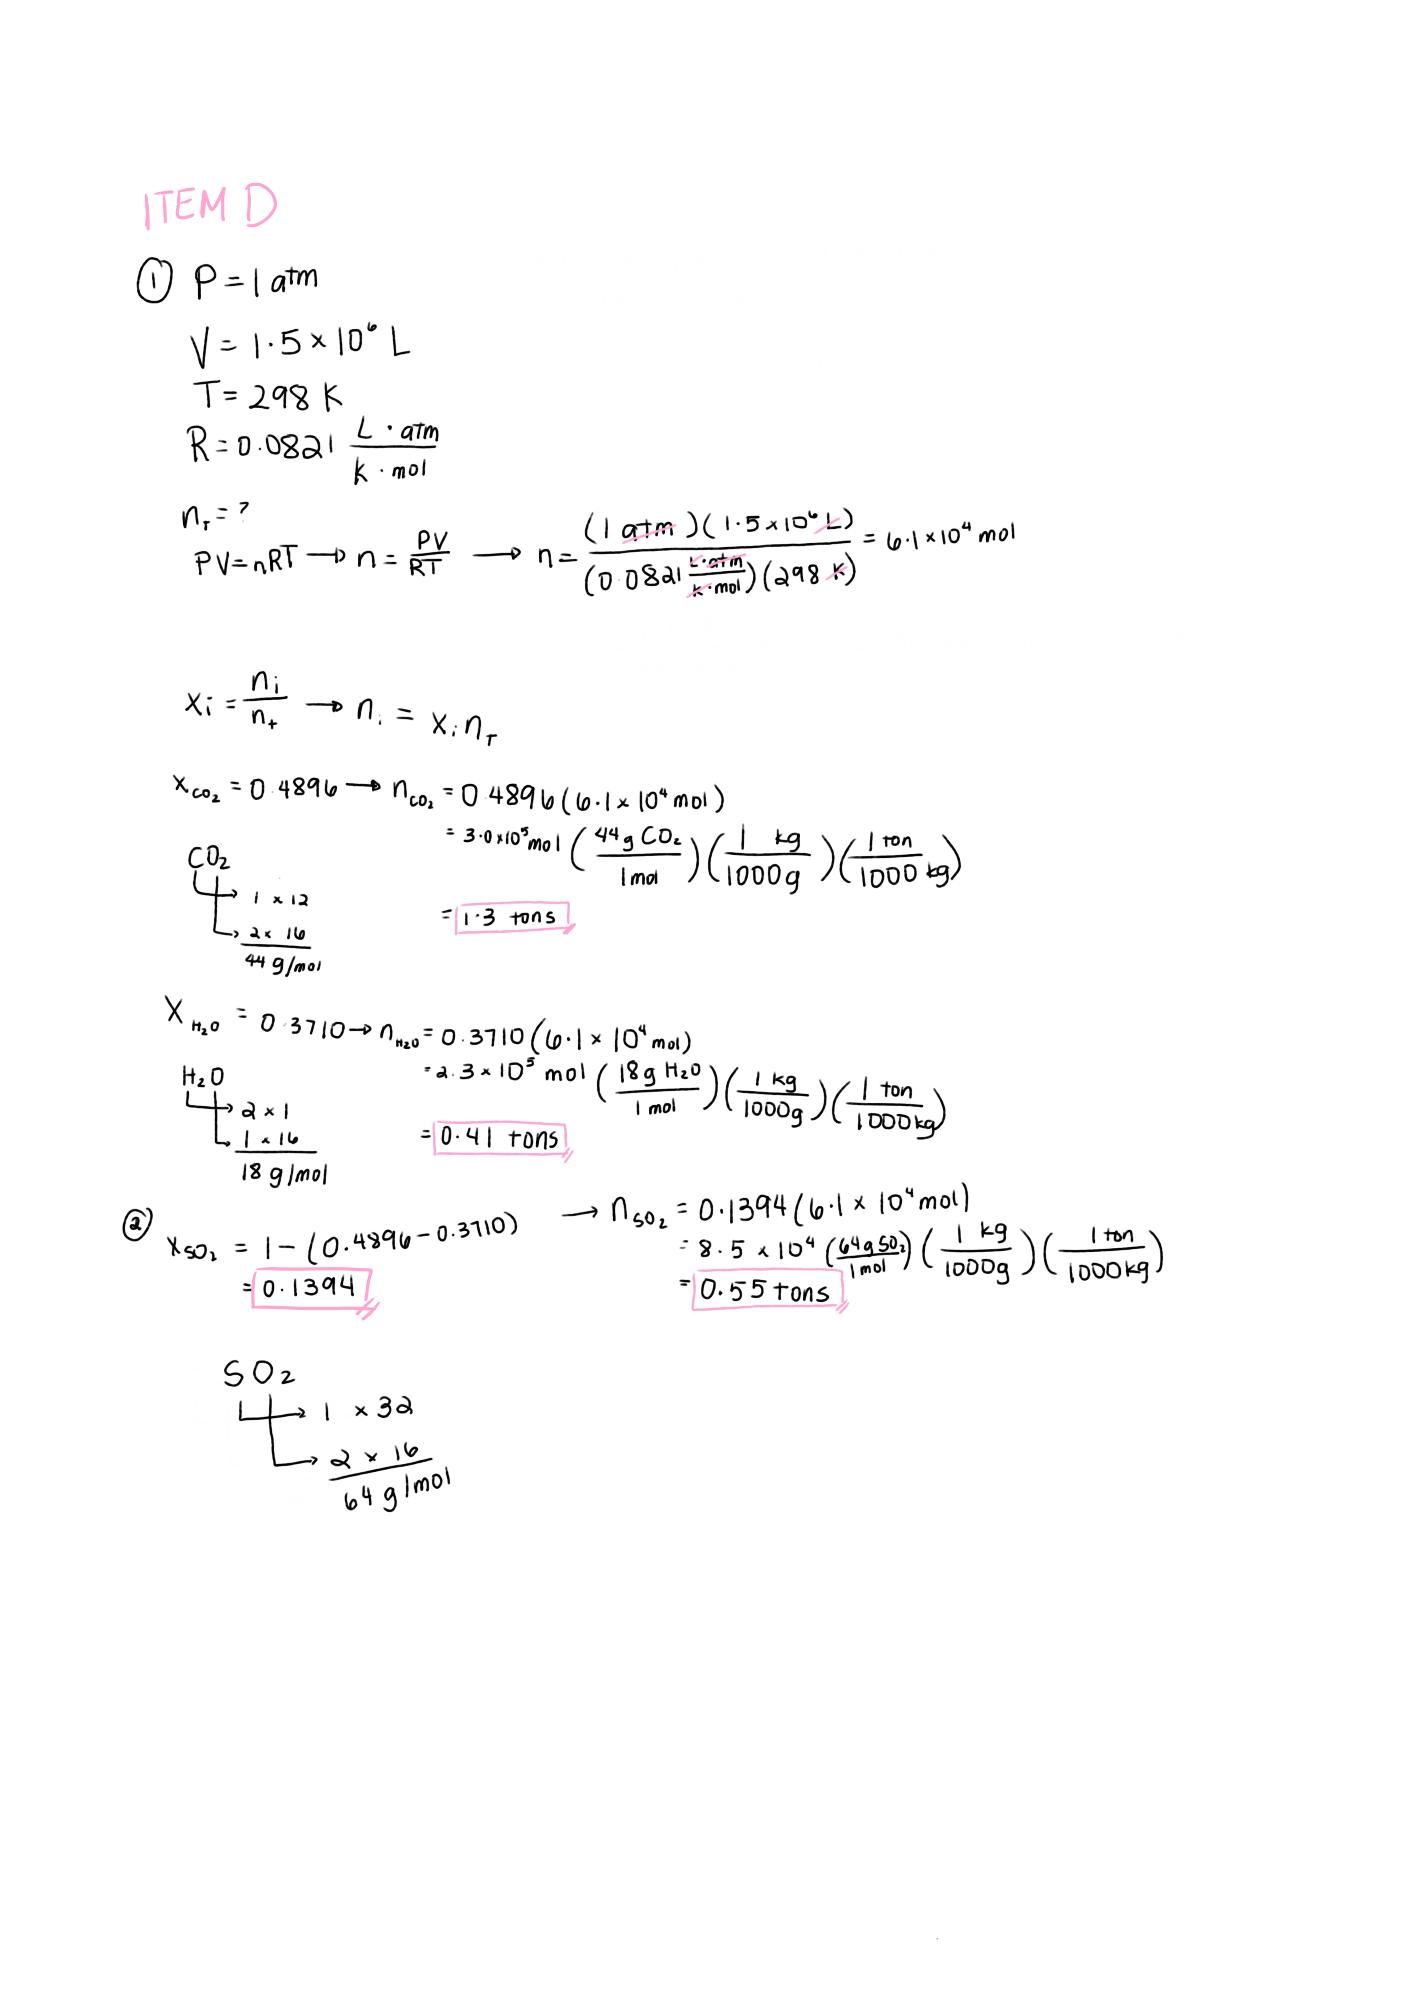 ITEM D
① P = 1 atm
V = 1.5 × 10⁶ L
T = 298 K
R = 0.0821 L · atm / K · mol
n_T = ?
PV = nRT → n = PV / RT → n = (1 atm)(1.5 × 10⁶ L) / (0.0821 L·atm / K·mol)(298 K) = 6.1 × 10⁴ mol
Xi = n_i / n_t → n_i = X_i n_T
X_CO₂ = 0.4896 → n_CO₂ = 0.4896 (6.1 × 10⁴ mol)
= 3.0 × 10⁵ mol (44 g CO₂ / 1 mol) (1 kg / 1000 g) (1 ton / 1000 kg)
CO₂
1 × 12
= 1.3 tons
2 × 16
44 g/mol
X_H₂O = 0.3710 → n_H₂O = 0.3710 (6.1 × 10⁴ mol)
= 2.3 × 10⁵ mol (18 g H₂O / 1 mol) (1 kg / 1000 g) (1 ton / 1000 kg)
H₂O
2 × 1
1 × 16
= 0.41 tons
18 g/mol
② X_SO₂ = 1 - (0.4896 - 0.3710) → n_SO₂ = 0.1394 (6.1 × 10⁴ mol)
= 8.5 × 10⁴ (64 g SO₂ / 1 mol) (1 kg / 1000 g) (1 ton / 1000 kg)
= 0.1394
= 0.55 tons
SO₂
1 × 32
2 × 16
64 g/mol